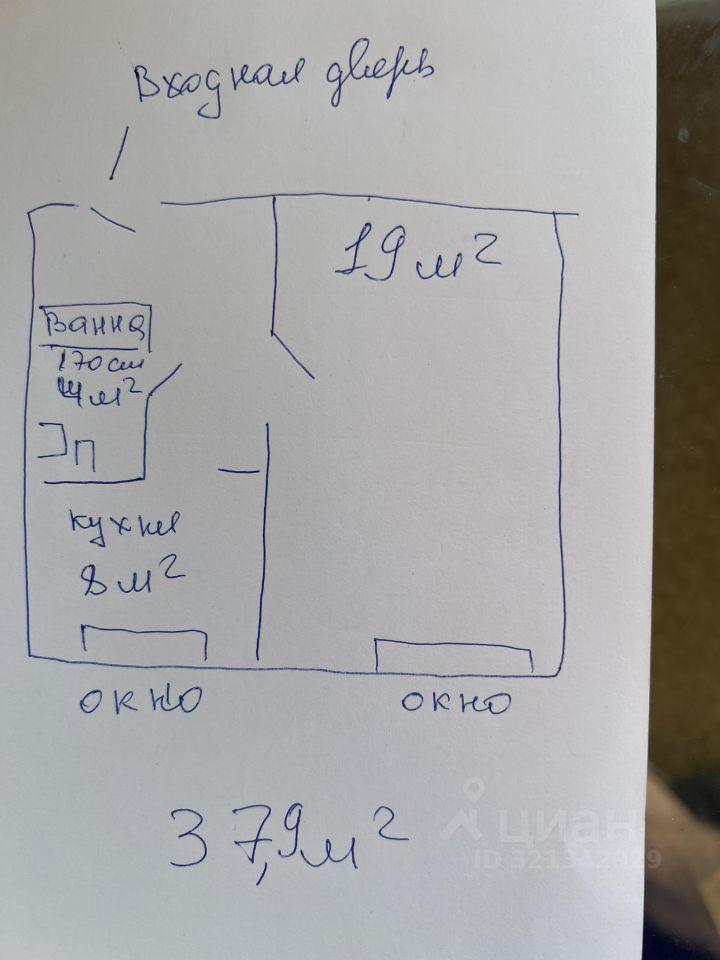 Входная дверь
19 м²
Ванна
170 см
4 м²
кухня
8 м²
окно
окно
37,9 м²
циан